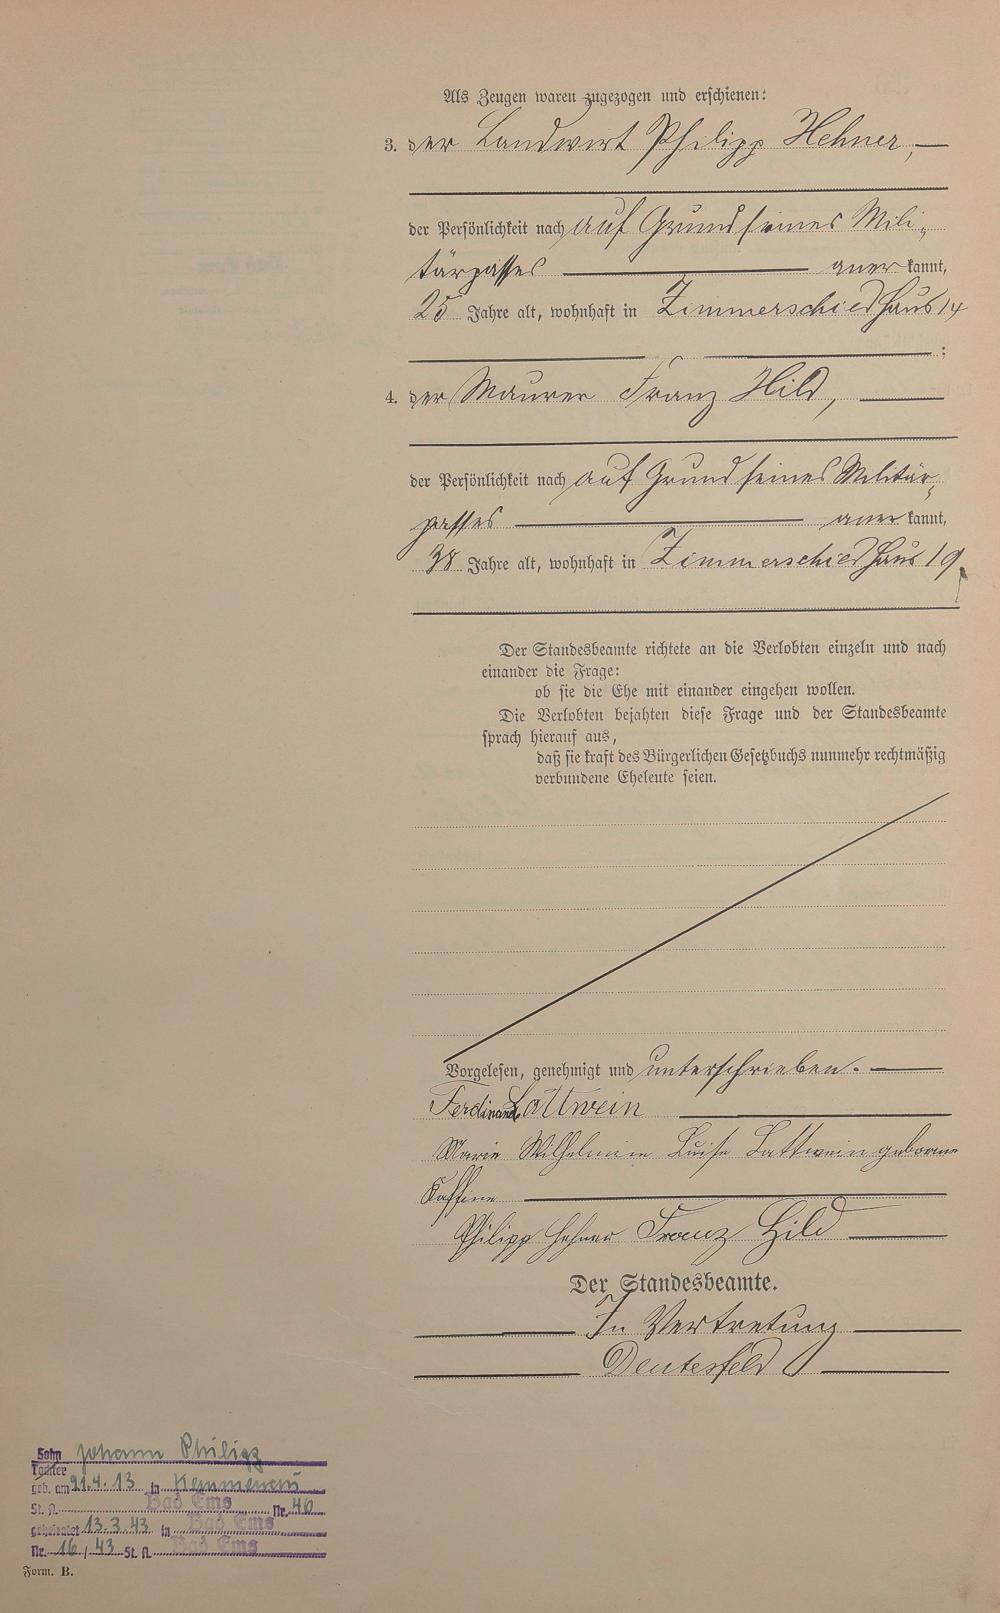 Als Zeugen waren zugezogen und erschienen:
3. der Landwirt Philipp Hehner,
der Persönlichkeit nach auf Grund seines Mili-
tärpasses anerkannt,
25 Jahre alt, wohnhaft in Zimmerschied Haus 14
;
4. der Maurer Franz Hild,
der Persönlichkeit nach auf Grund seines Militär-
passes anerkannt,
38 Jahre alt, wohnhaft in Zimmerschied Haus 19.
Der Standesbeamte richtete an die Verlobten einzeln und nach
einander die Frage:
ob sie die Ehe mit einander eingehen wollen.
Die Verlobten bejahten diese Frage und der Standesbeamte
sprach hierauf aus,
daß sie kraft des Bürgerlichen Gesetzbuchs nunmehr rechtmäßig
verbundene Eheleute seien.
Vorgelesen, genehmigt und unterschrieben.
Ferdinand Lattwein
Marie Wilhelmine Luise Lattwein geborene
Philipp Hehner Franz Hild
Der Standesbeamte.
In Vertretung
Deutesfeld
Sohn Johann Philipp
Tochter
geb. am 21.4.13 in Kemmenau
St. A. Bad Ems Nr. 40
geheiratet 13.3.43 in Bad Ems
Nr. 16/43 St. A. Bad Ems
Form. B.